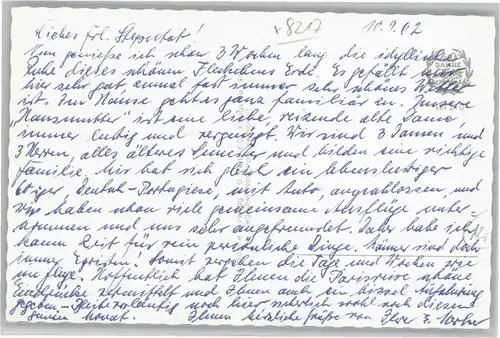 Liebes Frl. Steputat! v 8217 10.9.62
Nun genieße ich schon 3 Wochen lang die idyllische
Ruhe dieses schönen Fleckchens Erde. Es gefällt
hier sehr gut, zumal fast immer sehr schönes Wetter
ist. Im Hause geht es ganz familiär zu. Unsere
"Hausmutter" ist eine liebe, reizende alte Dame,
immer lustig und vergnügt. Wir sind 3 Damen und
3 Herren, alles älteres Semester und bilden eine richtige
Familie. Mir hat sich gleich ein lebenslustiger
Deutsch-Portugiese, mit Auto, angeschlossen, und
wir haben schon viele gemeinsame Ausflüge unter-
nommen und uns sehr angefreundet. Daher habe ich
kaum Zeit für rein persönliche Dinge. Männer sind doch
immer Egoisten! Sonst vergehen die Tage und Wochen wie
im Fluge. Hoffentlich hat Ihnen die Parisreise schöne
Eindrücke vermittelt und Ihnen auch ein bissel Aufheiterung
gegeben. Bleibe vorläufig noch hier, sicherlich wohl noch diesen
ganzen Monat. Ihnen herzliche Grüße von Ihrer E.